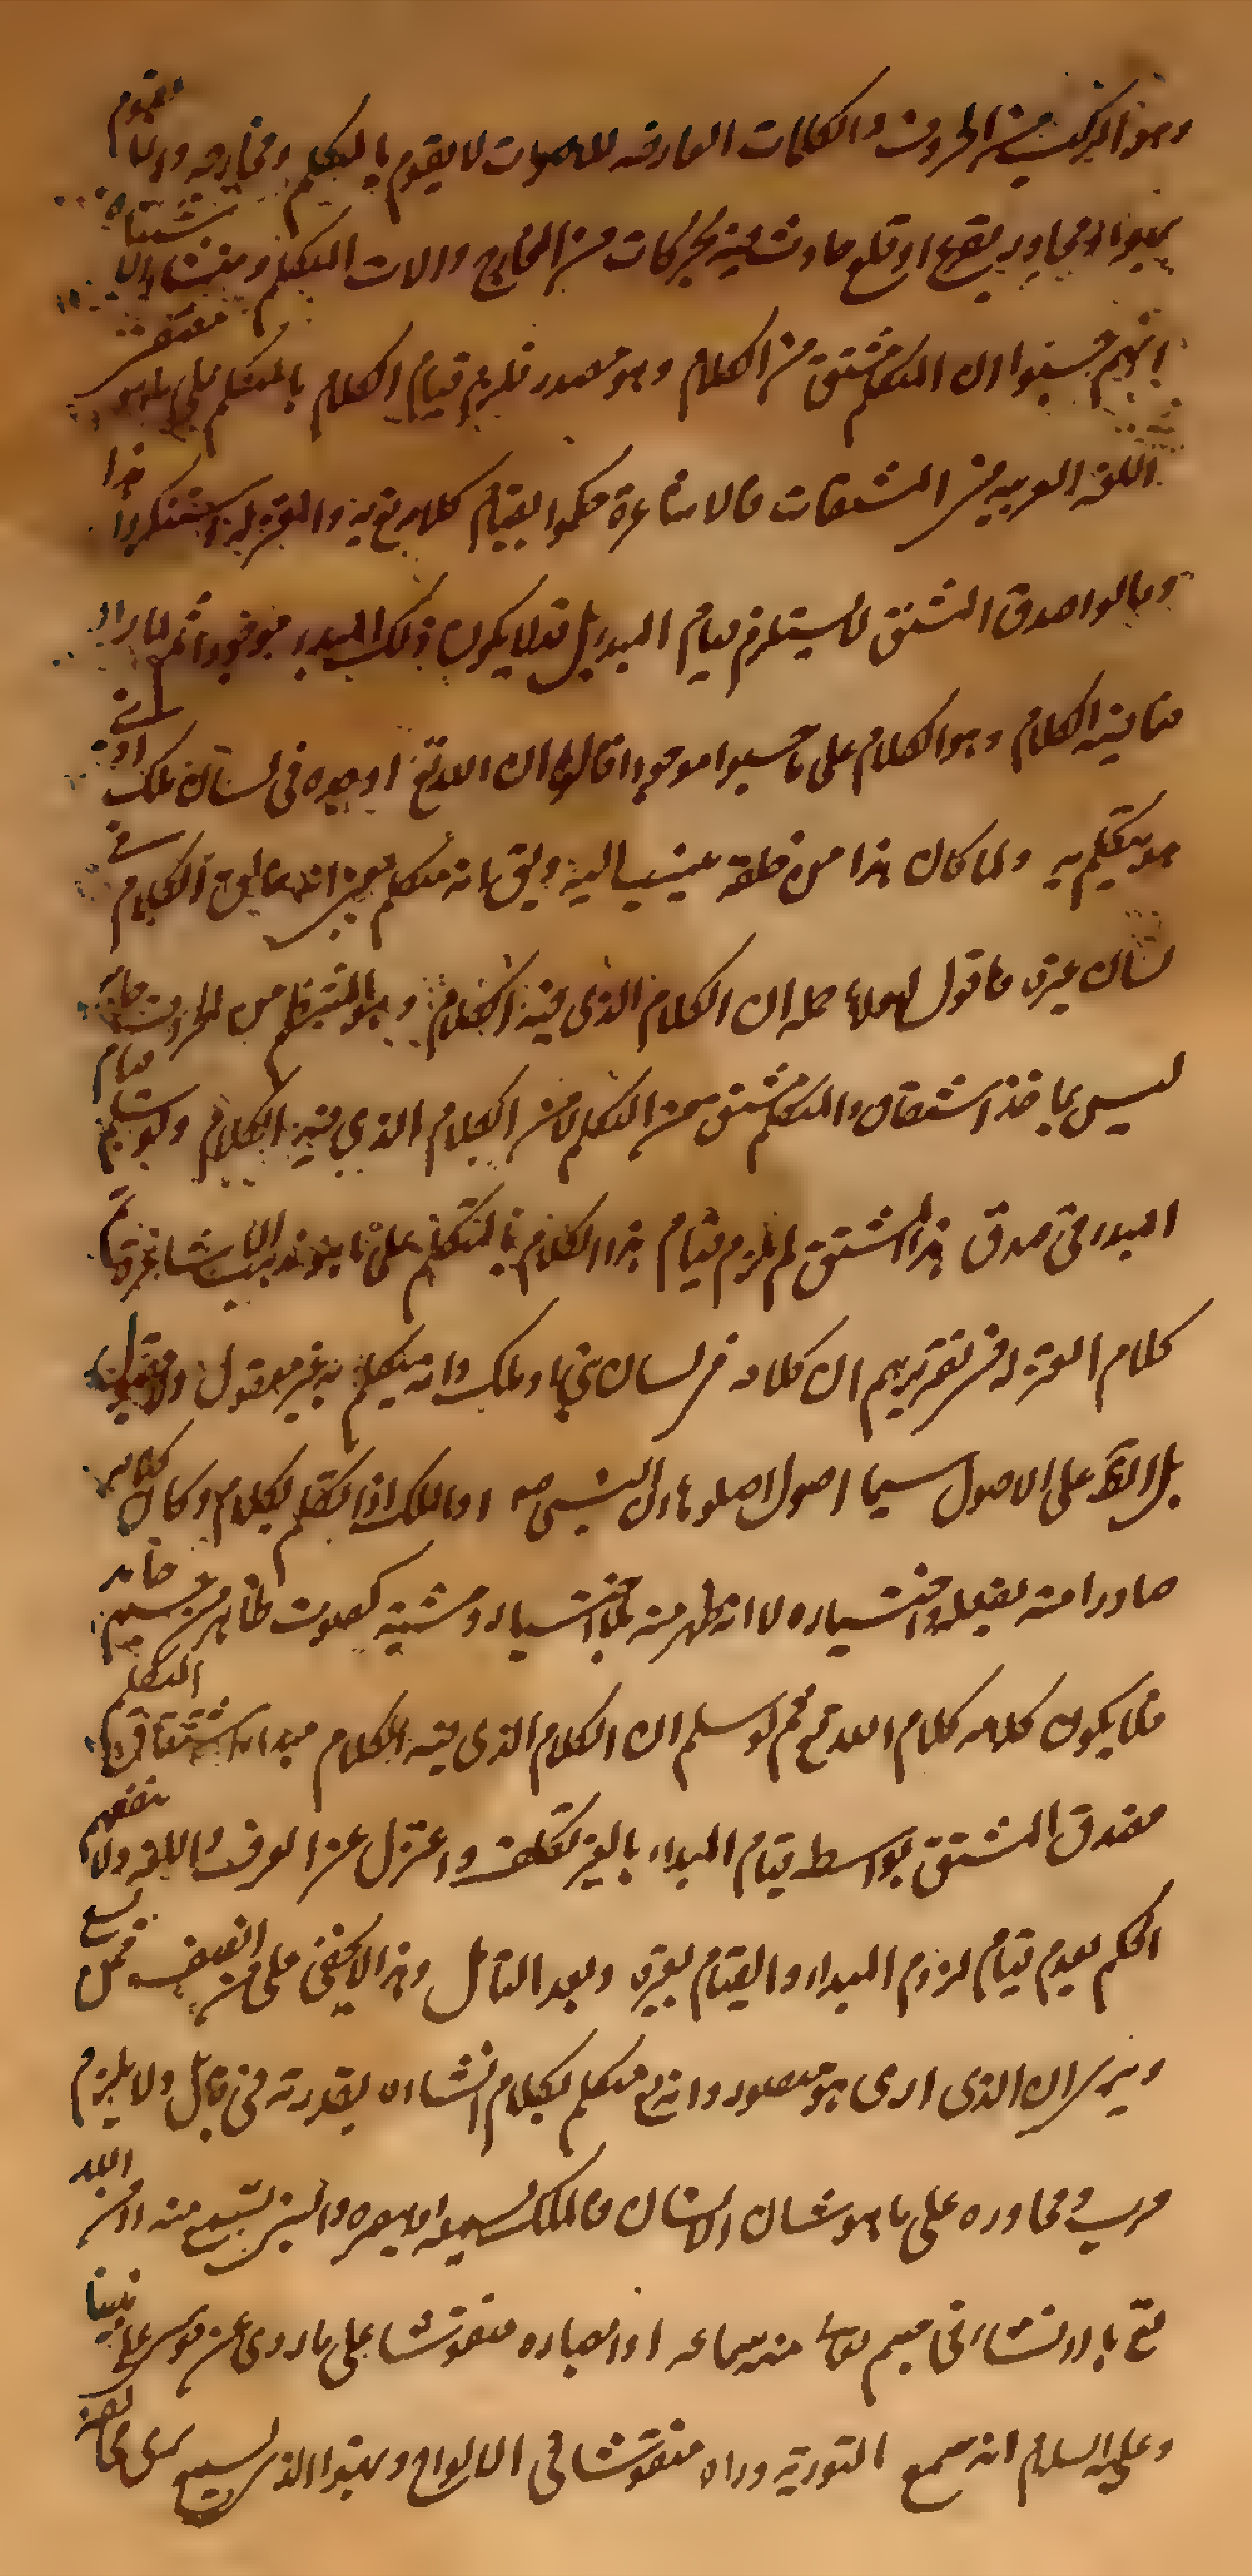 وهو المركب من الحروف والكلمات العارضة للاصوات لا يقوم بالمتكلم ومخارجه وانما يقوم
بهواء مجاوره يقرع او قلع حادث فيه بحركات من المخارج والات المتكلم ومنشاء الاشتباه
انهم حسبوا ان المتكلم مشتق من الكلام وهو مصدر فلزم قيام الكلام بالمتكلم على ما هو مقتضى
اللغة العربية من المشتقات فالاشاعرة حكموا بقيام كلامه تع به والمعتزلة استنكروا هذا
وقالوا صدق المشتق لا يستلزم قيام المبدء بل قد لا يكون ذلك المبدء موجودا ثم لما راوا
فيه الكلام وهو الكلام على ما حسبوا موجودا قالوا ان الله تع اوجده في لسان ملك او نبي
هو يتكلم به ولما كان هذا من خلقه ينسب اليه ويق انه متكلم بمعنى انه خالق الكلام في
لسان غيره فاقول لهولاء جملة ان الكلام الذي فيه الكلام وهو المنتظم من الحروف
ليس بماخذ اشتقاق والمتكلم مشتق من التكلم لا من الكلام الذي فيه الكلام ولو سلم قيام
المبدء في صدق هذا المشتق لم يلزم قيام هذا الكلام بالمتكلم على ما هو مذهب الاشاعرة
كلام المعتزلة في تقريرهم ان كلامه في لسان نبي او ملك وانه متكلم به غير معقول ولا مقبول
بل الظ على الاصول سيما اصول اصلوها ان النبي ص او الملك اذا تكلم بكلام وكان كلامه
صادرا منه بفعله واختياره لا انه ظهر منه بلا اختياره ومشيته كصوت ظاهر من جسم جامد
فلا يكون كلامه كلام الله تع نعم لو سلم ان الكلام الذي فيه الكلام مبداء اشتقاق المتكلم
فصدق المشتق بواسطة قيام المبداء بالغير تكلف واعتزل عن العرف واللغة ولا ينفعهم
الحكم بعدم قيام لزوم المبداء والقيام بغيره وبعد التامل وهذا لا يخفى على من انصف
ان الذي ارى هو متصور وانه تع متكلم بكلام انشاءه بقدرته في قابل ولا يلزم
قرب ومجاوره على ما هو شان الانسان فالملك يسمعه او يبصره والنبي يستمع منه او من الله
تع بان انشاء في جسم منه سماعه او ابصاره منقوشا على ما روى عن موسى على نبينا
وعليه السلام انه سمع التورية وراه منقوشا في الالواح وهذا الذي